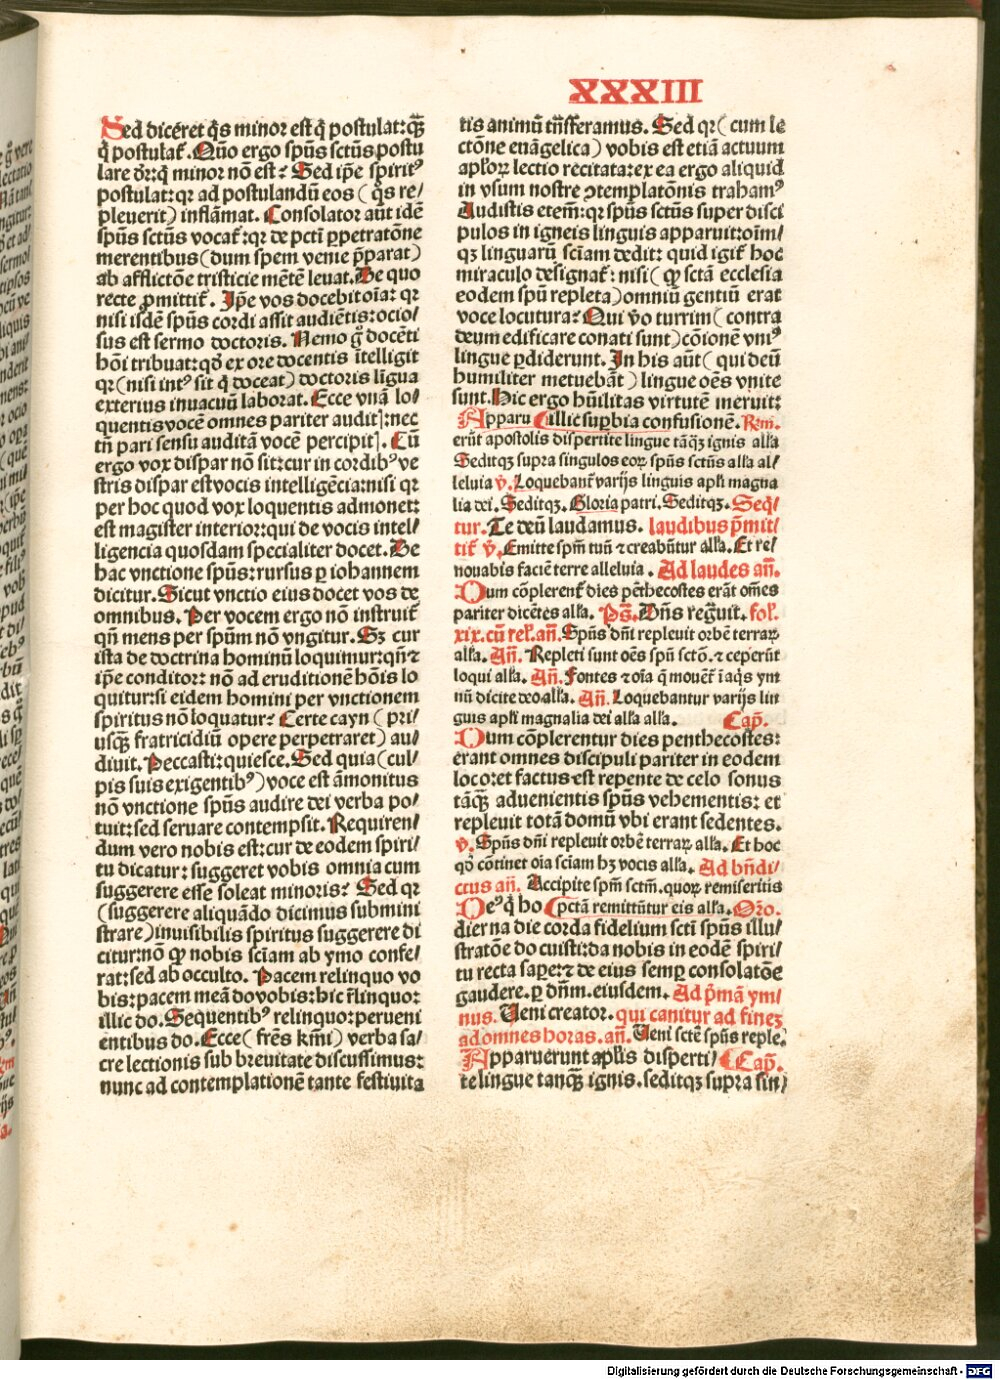 XXXIII
Sed diceret q̄s minor est q̄ postulat: q̄ȝ
q̄ postulat̄. Quō ergo spūs sctūs postu
lare dr̄: q̄ minor nō est? Sed ip̄e spiritꝰ
postulat: qꝛ ad postulandū eos (q̄s re/
pleuerit) inflāmat. Consolator aūt idē
spūs sctūs vocat̄: qꝛ de pcti ꝑpetratōne
merentibus (dum spem venie p̄parat)
ab afflictōe tristicie mētē leuat. De quo
recte ꝓmittit̄. Ip̄e vos docebit oīa: qꝛ
nisi isdē spūs cordi assit audiētis: ocio/
sus est sermo doctoris. Nemo g̊ docēti
hōi tribuat: qd̓ ex ore docentis ītelligit
qꝛ (nisi intꝰ sit q̄ doceat) doctoris līgua
exterius inuacuū laborat. Ecce vnā lo/
quentis vocē omnes pariter audit]: nec
tn̄ pari sensu auditā vocē percipit]. Cū
ergo vox dispar nō sit: cur in cordibꝰ ve
stris dispar est vocis intelligēcia: nisi qꝛ
per hoc quod vox loquentis admonet:
est magister interior: qui de vocis intel/
ligencia quosdam specialiter docet. De
hac vnctione spūs: rursus ꝑ iohannem
dicitur. Sicut vnctio eius docet vos de
omnibus. Per vocem ergo nō instruit̄
qn̄ mens per spūm nō vngitur. Sȝ cur
ista de doctrina hominū loquimur: qn̄ ⁊
ip̄e conditor: nō ad eruditionē hōis lo
quitur: si eidem homini per vnctionem
spiritus nō loquatur? Certe cayn (pri/
usq̄ȝ fratricidiū opere perpetraret) au/
diuit. Peccasti: quiesce. Sed quia (cul/
pis suis exigentibꝰ) voce est āmonitus
nō vnctione spūs audire dei verba po/
tuit: sed seruare contempsit. Requiren/
dum vero nobis est: cur de eodem spiri/
tu dicatur: suggeret vobis omnia cum
suggerere esse soleat minoris? Sed qꝛ
(suggerere aliquādo dicimus submini
strare) inuisibilis spiritus suggerere di
citur: nō ꝙ nobis sciam ab ymo confe/
rat: sed ab occulto. Pacem relinquo vo
bis: pacem meā do vobis: hic r̄linquo:
illic do. Sequentibꝰ relinquo: perueni
entibus do. Ecce (frēs km̄i) verba sa/
cre lectionis sub breuitate discussimus:
nunc ad contemplationē tante festiuita
tis animū trn̄sferamus. Sed qꝛ (cum le
ctōne euāgelica) vobis est etiā actuum
aplo̓ꝝ lectio recitata: ex ea ergo aliquid
in vsum nostre ꝯtemplatōnis trahamꝰ
Audistis etem̄: qꝛ spūs sctūs super disci
pulos in igneis linguis apparuit: oīm/
qȝ linguarū sciam dedit: quid igit̄ hoc
miraculo designat̄: nisi (ꝙ sctā ecclesia
eodem spū repleta) omniū gentiū erat
voce locutura? Qui v̓o turrim (contra
deum edificare conati sunt) cōionē vniꝰ
lingue ꝑdiderunt. In his aūt (qui deū
humiliter metuebāt) lingue oēs vnite
sunt. Hic ergo hūilitas virtutē meruit:
Apparu illic suꝑbia confusionē. Rm̄.
erūt apostolis dispertite lingue tāqȝ ignis alla
Seditqȝ supra singulos eoꝝ spūs sctūs alla al/
leluia v̓. Loquebant̄ varijs linguis apli magna
lia dei. Seditqȝ. Gloria patri. Seditqȝ. Seq̄/
tur. Te deū laudamus. laudibus p̄mit/
tit̄ v̓. Emitte spm̄ tuū ⁊ creabūtur alla. Et re/
nouabis faciē terre alleluia. Ad laudes an̄.
Dum cōplerent̄ dies pēthecostes erāt om̄es
pariter dicētes alla. Ps̄. Dn̄s reg̓uit. fol̓.
xix. cū rel̓. an̄. Spūs dn̄i repleuit orbē terraꝝ
alla. An̄. Repleti sunt oēs spū sctō. ⁊ ceperūt
loqui alla. An̄. Fontes ⁊ oīa q̄ mouēt̄ ī aqs ym
nū dicite deo alla. An̄. Loquebantur varijs lin
guis apli magnalia dei alla alla. Cap̄.
Dum cōplerentur dies penthecostes:
erant omnes discipuli pariter in eodem
loco: et factus est repente de celo sonus
tāq̄ȝ aduenientis spūs vehementis: et
repleuit totā domū vbi erant sedentes.
v̓. Spūs dn̄i repleuit orbē terraꝝ alla. Et hoc
qd̓ cōtinet oīa sciam hȝ vocis alla. Ad bn̄di/
ctus an̄. Accipite spm̄ sctm̄. quoꝝ remiseritis
Deꝰ q̄ ho pctā remittūtur eis alla. Oro̅.
dierna die corda fidelium scti spūs illu/
stratōe docuisti: da nobis in eodē spiri/
tu recta sapeꝛ: ⁊ de eius semꝑ consolatōe
gaudere. ꝑ dn̄m. eiusdem. Ad p̄mā ym/
nus. Ueni creator. qui canitur ad finez
ad omnes horas. an̄. Ueni sctē spūs reple.
Apparuerunt aplis disperti/ Cap̄.
te lingue tanq̄ȝ ignis. seditqȝ supra sin/
Digitalisierung gefördert durch die Deutsche Forschungsgemeinschaft - DFG